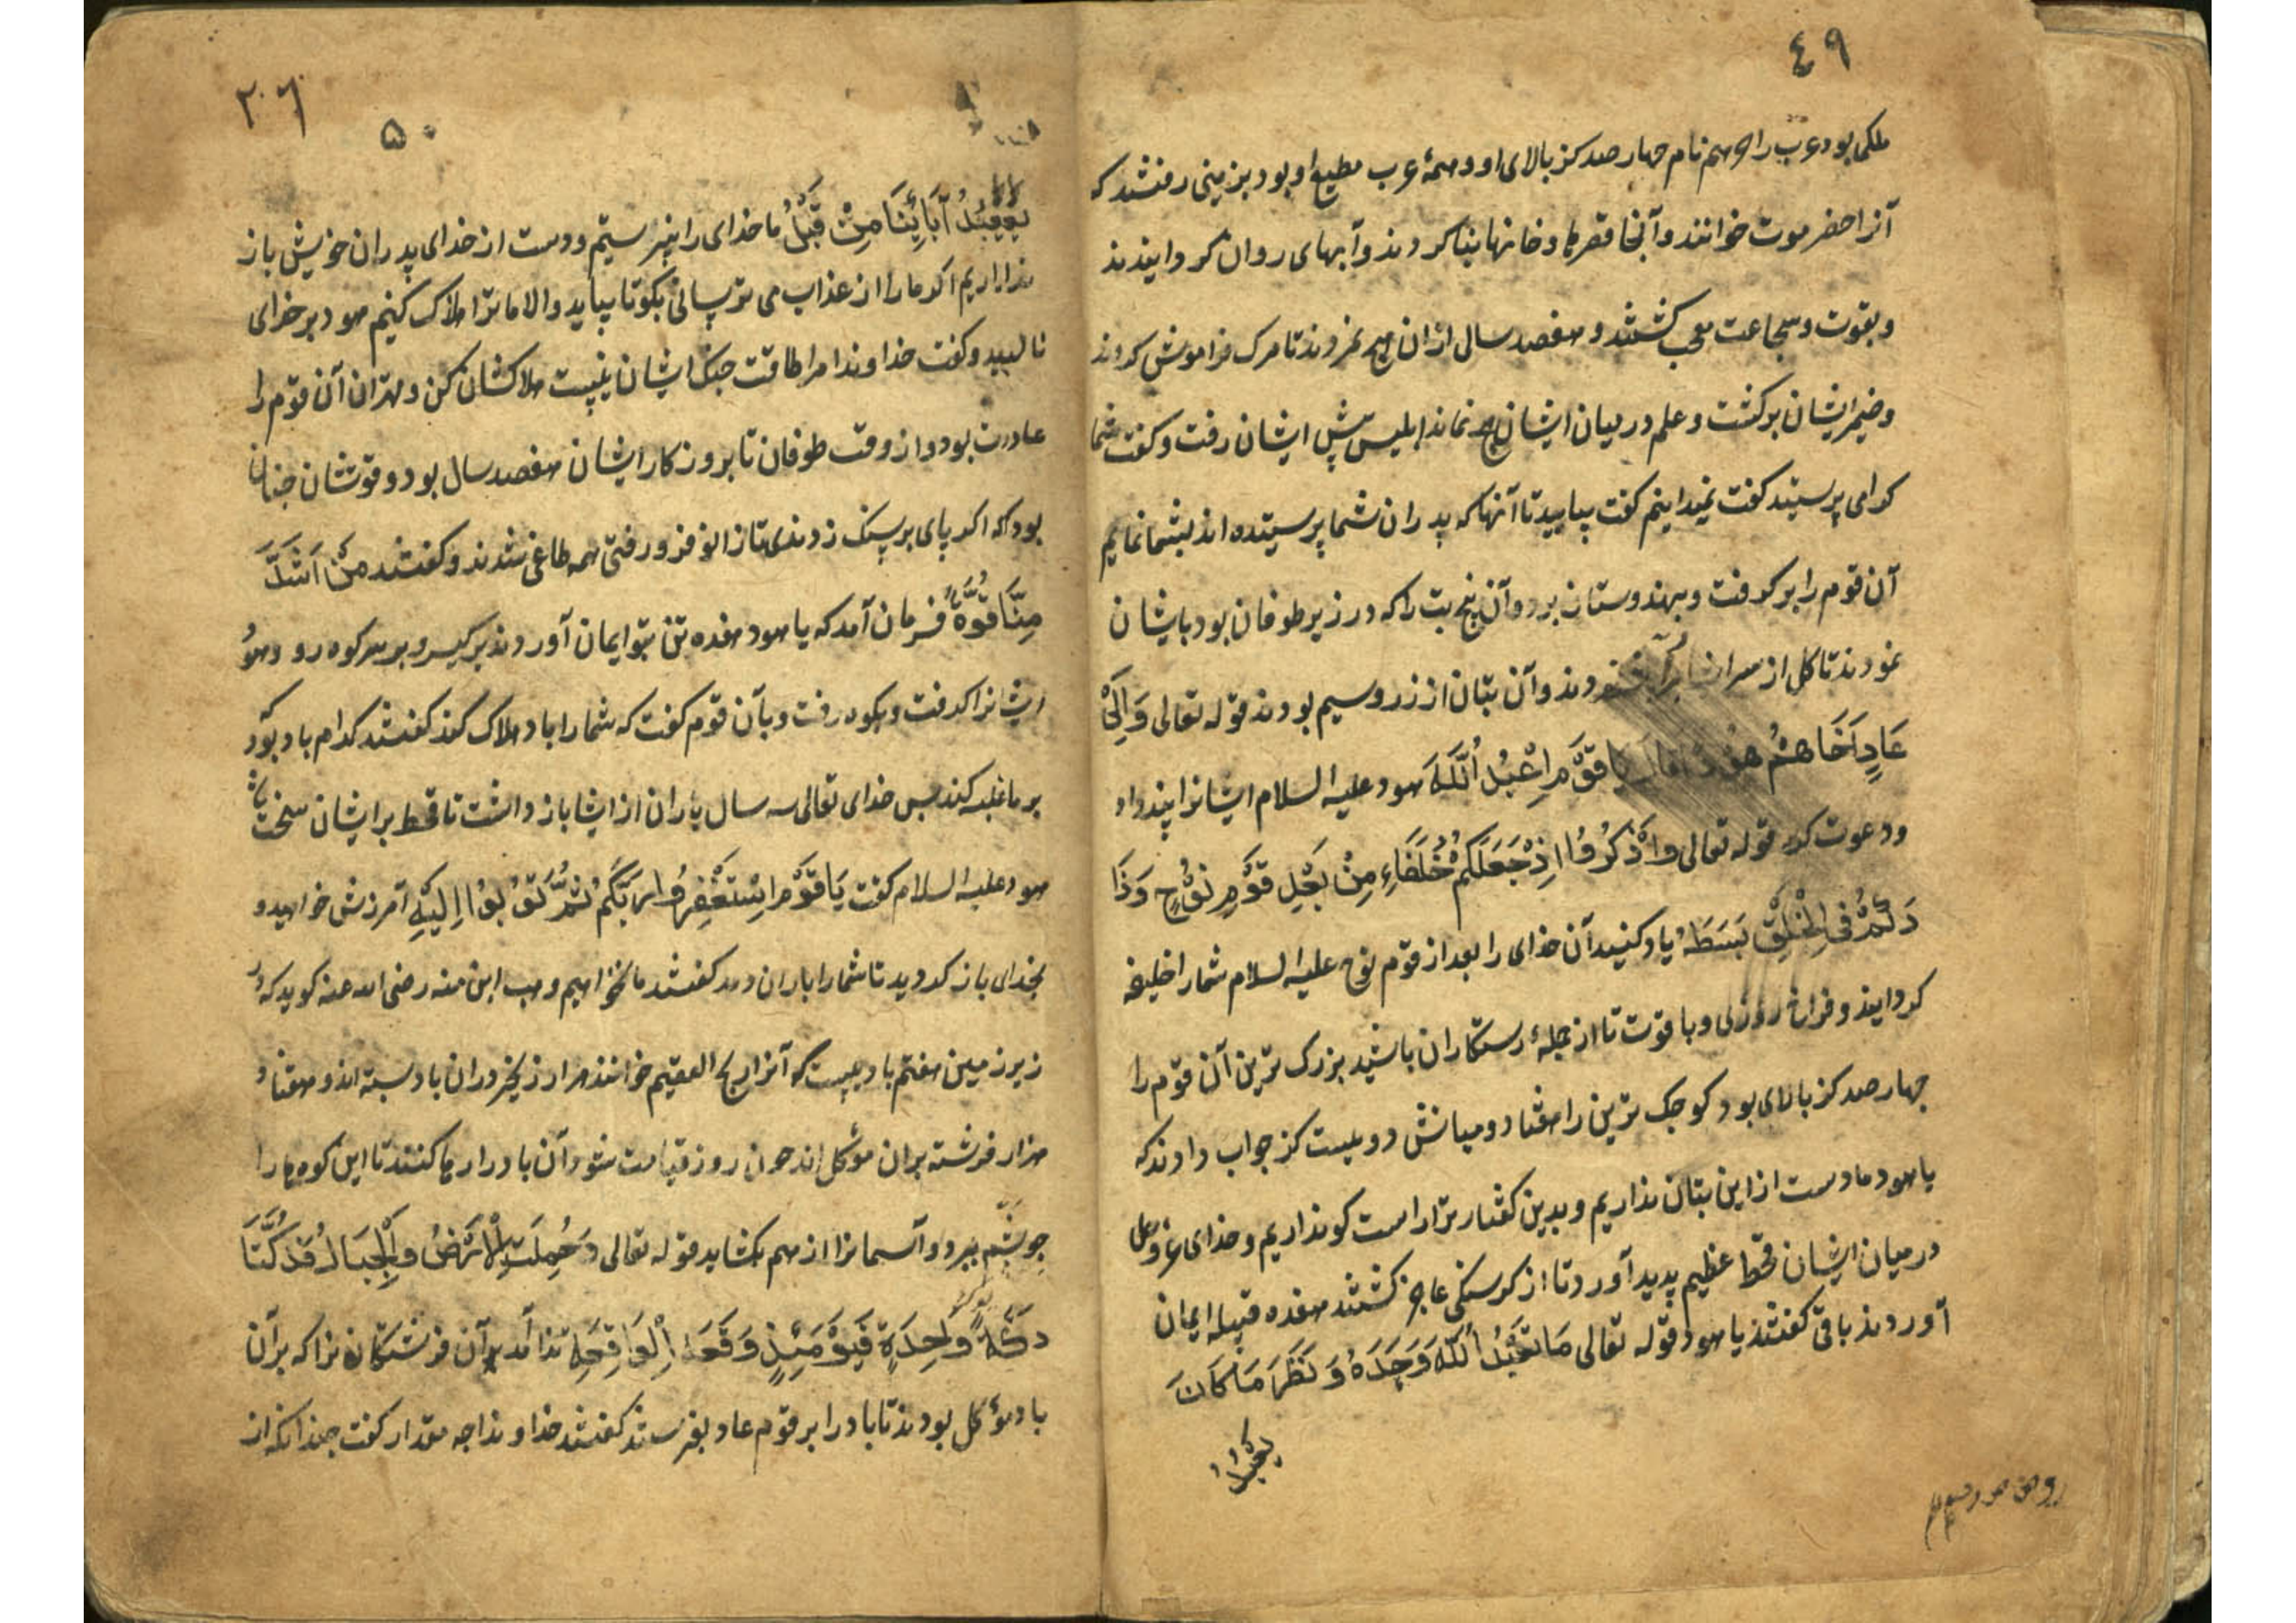 ٤٩
ملکی بود عرب را نام جهار صد کز بالای او و همهٔ عرب مطیع او بود بزمینی رفتند که
آنرا حضر موت خوانند و آنجا قصرها و خانها بنا کردند و آبهای روان کردانیدند
و بقوت و شجاعت کشتند و هفصد سالی ازان نمردند تا مرک فراموش کردند
و ضمیر ایشان برکشت و علم در میان ایشان نماند ابلیس پیش ایشان رفت و کفت شما
کرا می پرستید کفت نمیدانیم کفت بیایید تا آنها که پدران شما پرستیده اند بشما نمایم
آن قوم را بر کرفت و بهندوستان برد و آن پنج بت را که در زیر طوفان بود بایشان
نمودند تا کل از سر دند و آن بتان از زر و سیم بودند قوله تعالی وَاِلَیٰ
عَادٍ اَخَاهُمْ هُودًا قَالَ یَا قَوْمِ اعْبُدُ اللّٰهَ هود علیه السلام ایشانرا پند داد
و دعوت کرد قوله تعالی وَاذْکُرُوْا اِذْ جَعَلَکُمْ خُلَفَاءِ مِنْ بَعْدِ قَوْمِ نُوْحٍ وَزَا
دَکُمْ فِی الْخَلْقِ بَسَطَهْ یاد کنید آن خدای را بعد از قوم نوح علیه السلام شما را خلیفه
کردانید و فراخ روزی و با قوت تا از جملهٔ رستکاران باشید بزرک ترین آن قوم را
جهار صد کز بالای بود کوجک ترین را هفتاد و میانش دویست کز جواب دادند که
یا هود ما دست از این بتان نداریم و بدین کفتار ترا راست کو نداریم و خدای عز و جل
در میان ایشان قحط عظیم پدید آورد تا از کرسنکی عاجز کشتند هفده قبیله ایمان
آوردند باقی کفتند یا هود قوله تعالی مَا نَعْبُدُ اللّٰهَ وَحْدَهُ وَ نَذَرَ مَا کَانَ
یعبد
٢٠٦
۵۰
یَعْبُدُ آبَائُنَا مِنْ قَبْلُ ما خدای را نپرستیم و دست از خدای پدران خویش باز
نداریم اکر ما را از عذاب می ترسانی بکو تا بیاید و الا ما ترا هلاک کنیم هود بر خدای
نالید و کفت خداوندا مرا طاقت جنک ایشان نیست هلاکشان کن و مهتران آن قوم را
عادت بود و از وقت طوفان تا بروزکار ایشان هفصد سال بود و قوتشان جنان
بود که اکر پای بر سنک زدندی تا زانو فرو رفتی همه طاغی شدند و کفتند مَنْ اَشَدُّ
مِنَّا قُوَّةً فرمان آمد که یا هود هفده تن بتو ایمان آوردند برکیر و بر سر کوه رو و هود
ایشانرا کرفت و بکوه رفت و بآن قوم کفت که شما را باد هلاک کند کفتند کدام باد بود
بر ما غلبه کند پس خدای تعالی سه سال باران از ایشا باز داشت تا قحط بر ایشان سخت شد
هود علیه السلام کفت یَا قَوْمِ اسْتَغْفِرُوا رَبَّکُمْ ثُمَّ تُوْبُوْا اِلَیْهِ آمرزش خواهید و
بخدای باز کردید تا شما را باران دهد کفتند ما نخواهیم وهب ابن منبه رضی الله عنه کوید که در
زیر زمین هفتم بادیست که آنرا ریح العقیم خوانند هزار زنجیر دران باد بسته اند و هفتاد
هزار فرشته بران موکل اند جون روز قیامت شود آن باد را رها کنند تا این کوه ها را
جو پشم ببرد و آسمانرا از هم بکشاید قوله تعالی وَحُمِلَتِ الْاَرْضُ وَالْجِبَالُ فَدُکَّتَا
دَکَّةً وَاحِدَةً فَیَوْمَئِذٍ وَقَعَتِ الْوَاقِعَةِ ندا آمد بر آن فرشتکان را که بر آن
باد موکل بودند تا باد را بر قوم عاد بفرستند کفتند خداوندا جه مقدار کفت جندانکه از